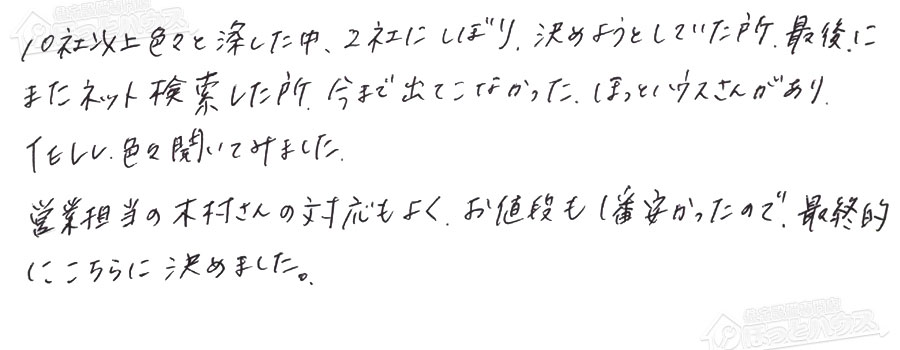 10社以上色々と探した中、2社にしぼり、決めようとしていた所、最後に
またネット検索した所、今まで出てこなかった、ほっとハウスさんがあり、
TELし、色々聞いてみました。
営業担当の木村さんの対応もよく、お値段も1番安かったので、最終的
にこちらに決めました。
ほっとハウス